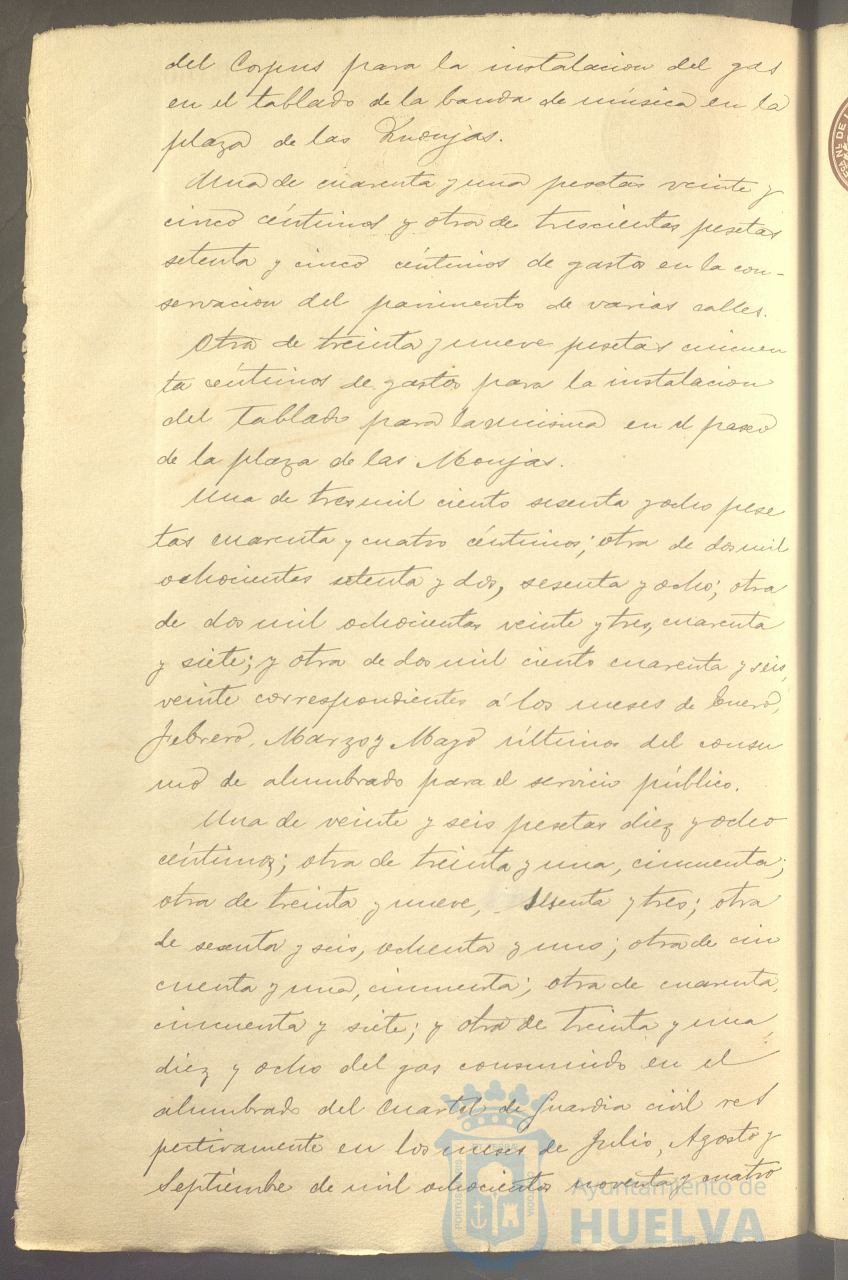 del Corpus para la instalacion del gas
en el tablado de la banda de música en la
plaza de las Monjas.
Una de cuarenta y una pesetas veinte y
cinco céntimos y otra de trescientas pesetas
setenta y cinco céntimos de gastos en la con-
servacion del pavimento de varias calles.
Otra de treinta y nueve pesetas cincuen
ta céntimos de gastos para la instalacion
del tablado para la misma en el paseo
de la plaza de las Monjas.
Una de tres mil ciento sesenta y ocho pese
tas cuarenta y cuatro céntimos; otra de dos mil
ochocientas setenta y dos, sesenta y ocho; otra
de dos mil ochocientas veinte y tres, cuarenta
y siete; y otra de dos mil ciento cuarenta y seis,
veinte correspondientes á los meses de Enero,
Febrero, Marzo y Mayo últimos del consu
mo de alumbrado para el servicio público.
Una de veinte y seis pesetas diez y ocho
céntimos; otra de treinta y una, cincuenta;
otra de treinta y nueve, sesenta y tres; otra
de sesenta y seis, ochenta y uno; otra de cin
cuenta y una, cincuenta; otra de cuarenta,
cincuenta y siete; y otra de treinta y una,
diez y ocho del gas consumido en el
alumbrado del cuartel de Guardia civil res
pectivamente en los meses de Julio, Agosto y
Septiembre de mil ochocientos noventa y cuatro
Ayuntamiento de
HUELVA